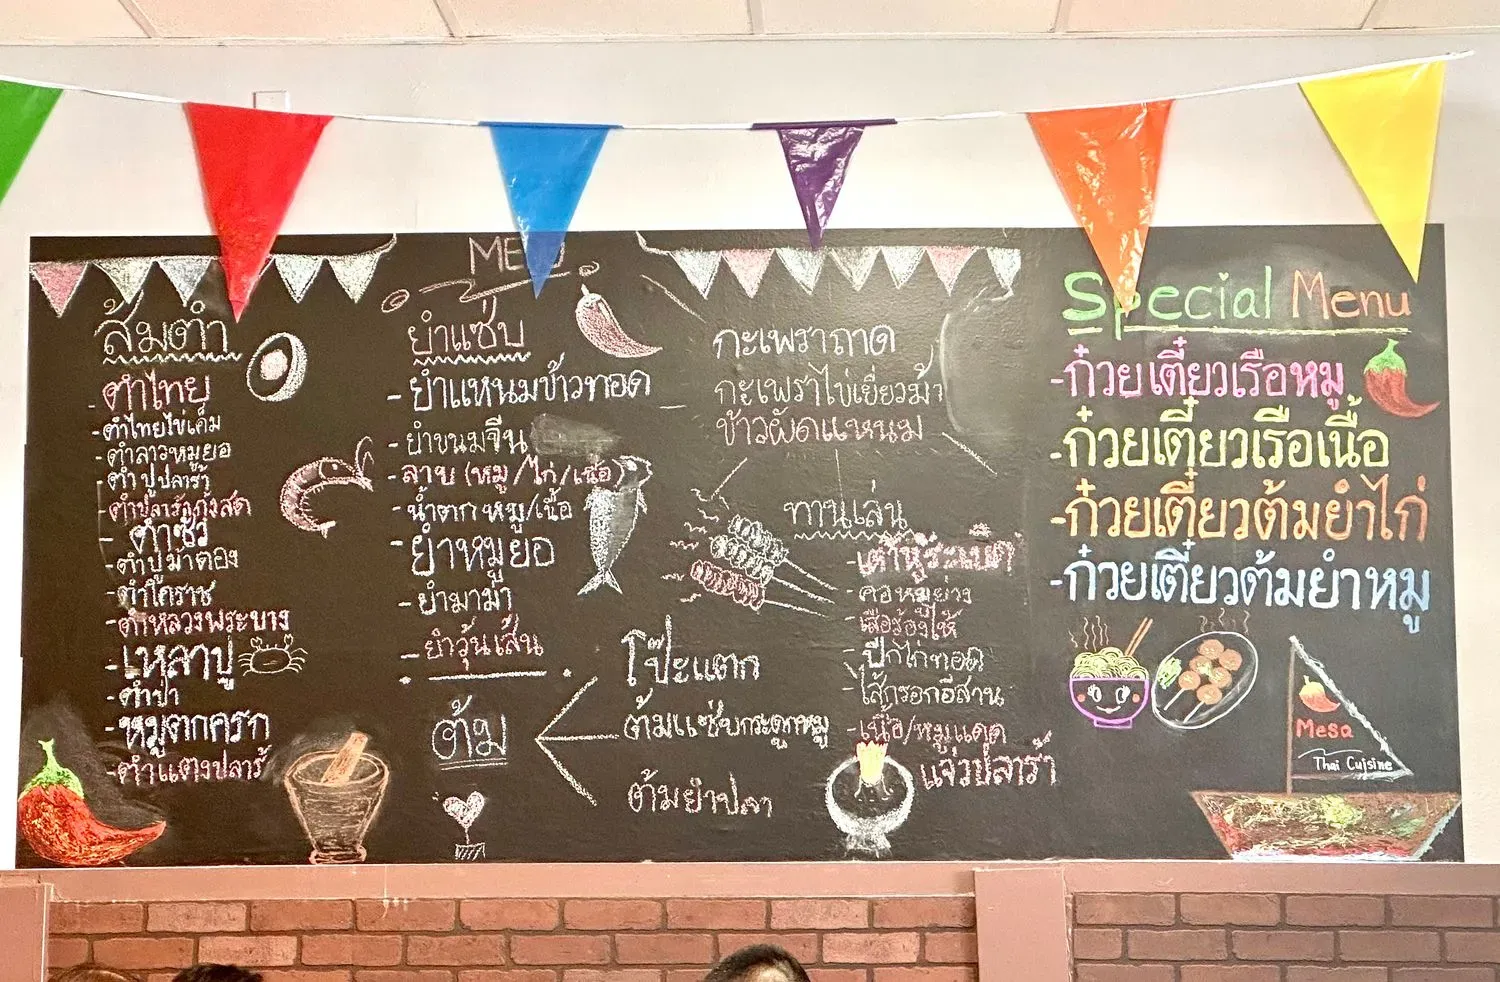 ส้มตำ
- ตำไทย
- ตำไทยไข่เค็ม
- ตำลาวหมูยอ
- ตำปูปลาร้า
- ตำปูปลาร้ากุ้งสด
- ตำซั่ว
- ตำปูม้าดอง
- ตำโคราช
- ตำหลวงพระบาง
- เหลาปู
- ตำป่า
- หมูตกครก
- ตำแตงปลาร้า
ยำแซ่บ
- ยำแหนมข้าวทอด
- ยำขนมจีน
- ลาบ (หมู/ไก่/เนื้อ)
- น้ำตก หมู/เนื้อ
- ยำหมูยอ
- ยำมาม่า
- ยำวุ้นเส้น
ต้ม
โป๊ะแตก
ต้มแซ่บกระดูกหมู
ต้มยำปลา
กะเพราถาด
กะเพราไข่เยี่ยวม้า
ข้าวผัดแหนม
ทานเล่น
- คอหมูย่าง
- เสือร้องไห้
- ปีกไก่ทอด
- ไส้กรอกอีสาน
- เนื้อ/หมูแดด
แจ่วปลาร้า
Special Menu
- ก๋วยเตี๋ยวเรือหมู
- ก๋วยเตี๋ยวเรือเนื้อ
- ก๋วยเตี๋ยวต้มยำไก่
- ก๋วยเตี๋ยวต้มยำหมู
Mesa
Thai Cuisine